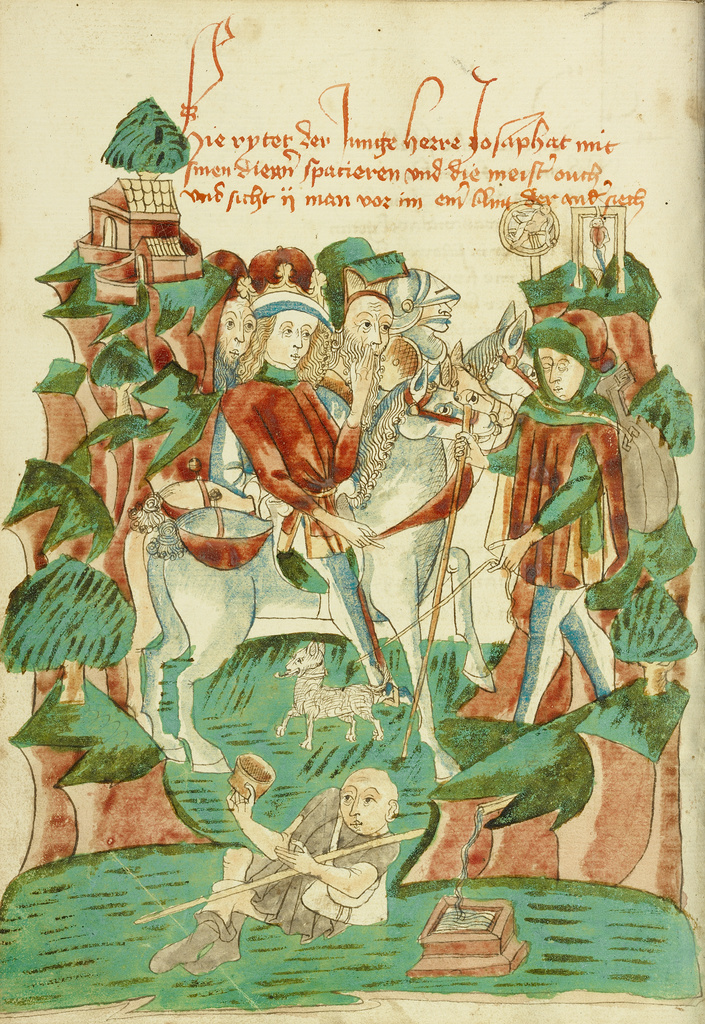 Hie rytet der Junge herre Josaphat mit
sinen diern̄ spacieren vnd die meist' ouch
vnd sicht ij man vor im ein' der and' siech